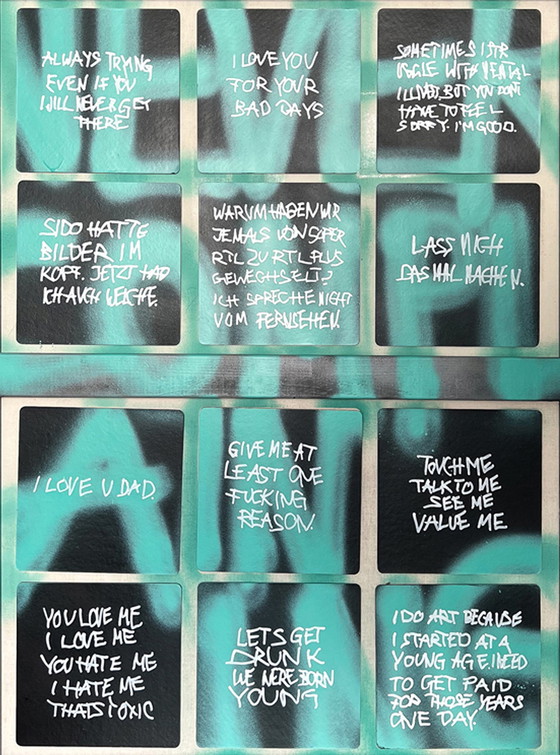 ALWAYS TRYING
EVEN IF YOU
WILL NEVER GET
THERE
I LOVE YOU
FOR YOUR
BAD DAYS
SOMETIMES I STR
UGGLE WITH MENTAL
ILLNES, BUT YOU DON'T
HAVE TO FEEL
SORRY. I'M GOOD.
SIDO HATTE
BILDER IM
KOPF. JETZT HAB
ICH AUCH WELCHE.
WARUM HABEN WIR
JEMALS VON SUPER
RTL ZU RTL PLUS
GEWECHSELT?
ICH SPRECHE NICHT
VOM FERNSEHEN.
LASS MICH
DAS MAL MACHEN.
I LOVE U DAD.
GIVE ME AT
LEAST ONE
FUCKING
REASON.
TOUCH ME
TALK TO ME
SEE ME
VALUE ME
YOU LOVE ME
I LOVE ME
YOU HATE ME
I HATE ME
THATS TOXIC
LETS GET
DRUNK
WE WERE BORN
YOUNG
I DO ART BECAUSE
I STARTED AT A
YOUNG AGE. I NEED
TO GET PAID
FOR THOSE YEARS
ONE DAY.